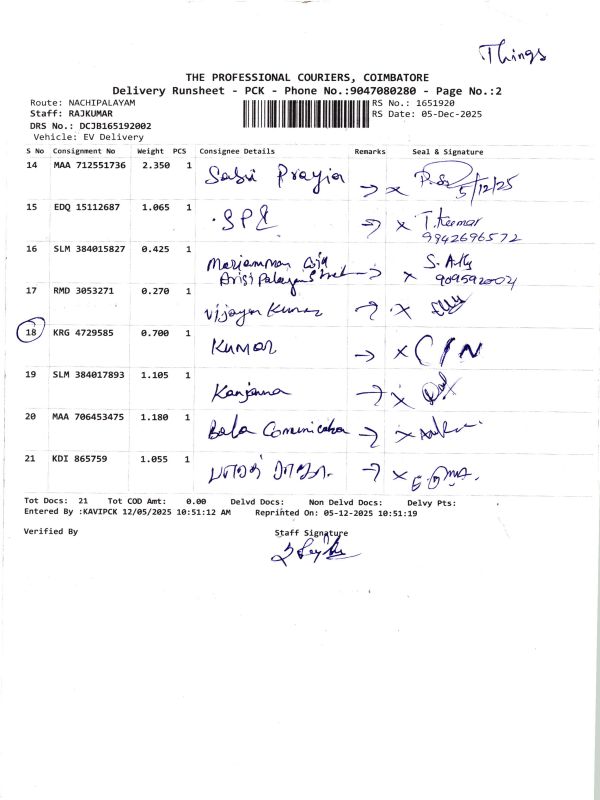 Things
THE PROFESSIONAL COURIERS, COIMBATORE
Delivery Runsheet - PCK - Phone No.:9047080280 - Page No.:2
Route: NACHIPALAYAM RS No.: 1651920
Staff: RAJKUMAR RS Date: 05-Dec-2025
DRS No.: DCJB165192002
Vehicle: EV Delivery
S No Consignment No Weight PCS Consignee Details Remarks Seal & Signature
14 MAA 712551736 2.350 1 → x
5/12/25
15 EDQ 15112687 1.065 1 SPE → x T. Kumar
9942696572
16 SLM 384015827 0.425 1 Mariamman → x
17 RMD 3053271 0.270 1 Vijayan Kumar → x
18 KRG 4729585 0.700 1 Kumar → x
19 SLM 384017893 1.105 1 Kanjanna → x
20 MAA 706453475 1.180 1 Bala → x
21 KDI 865759 1.055 1 → x
Tot Docs: 21 Tot COD Amt: 0.00 Delvd Docs: Non Delvd Docs: Delvy Pts:
Entered By :KAVIPCK 12/05/2025 10:51:12 AM Reprinted On: 05-12-2025 10:51:19
Verified By Staff Signature